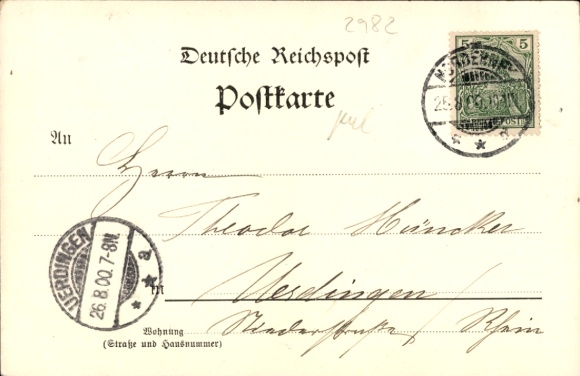 2982
Deutsche Reichspost
Postkarte
5 5
NORDERNEY
25.8.00
An
Herrn
Theodor Müncker
UERDINGEN
26.8.00.7-8N.
a
in Uerdingen / Rhein
Niederstraße
Wohnung
(Straße und Hausnummer)